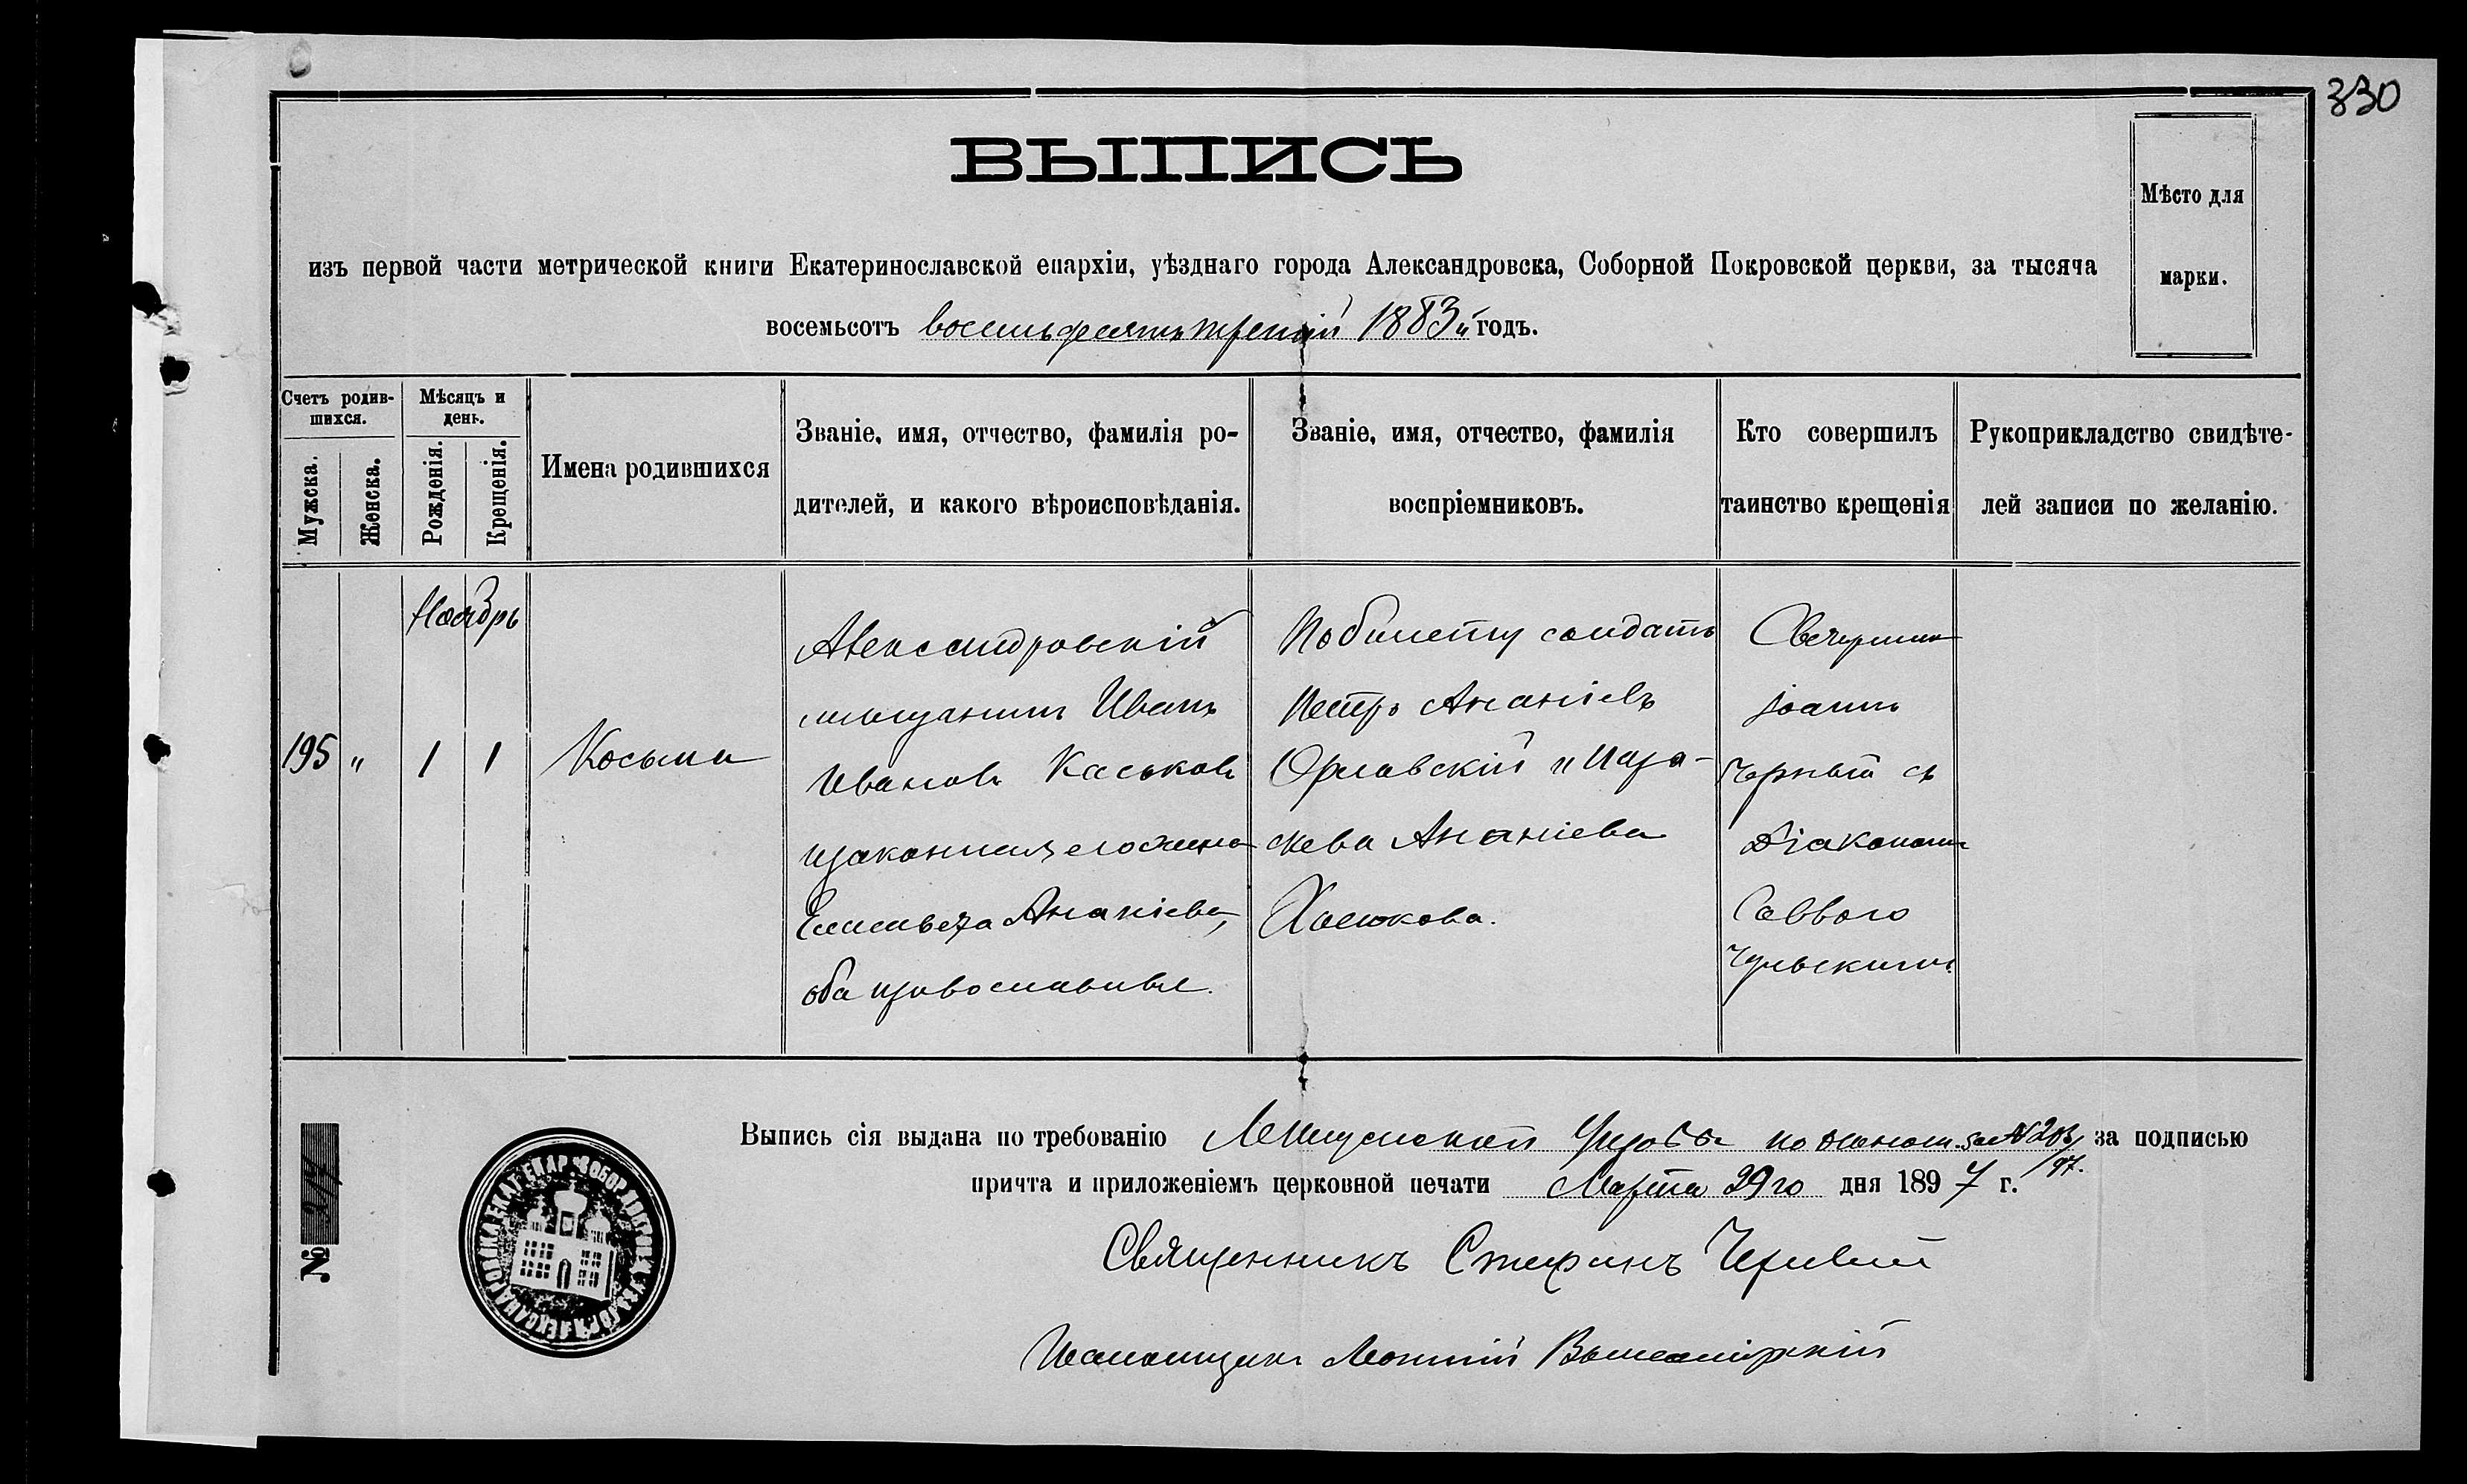 330
ВЫПИСЬ
Мѣсто для
марки.
изъ первой части метрической книги Екатеринославской епархіи, уѣзднаго города Александровска, Соборной Покровской церкви, за тысяча
восемьсотъ восемьдесятъ третій 1883й годъ.
Счетъ родив-
шихся.
Мужска.
Женска.
Мѣсяцъ и
день.
Рожденія.
Крещенія.
Имена родившихся
Званіе, имя, отчество, фамилія ро-
дителей, и какого вѣроисповѣданія.
Званіе, имя, отчество, фамилія
воспріемниковъ.
Кто совершилъ
таинство крещенія
Рукоприкладство свидѣте-
лей записи по желанію.
Ноябрь
195 " 1 1
Косьма
Александровскій
мѣщанинъ Иванъ
Ивановъ Каськовъ
и законная его жена
Елисавета Ананіева,
оба православные.
По билету солдатъ
Петръ Ананіевъ
Орловскій и Пара-
скева Ананіева
Священникъ
Іоаннъ
Черный съ
Діакономъ
Саввою
Выпись сія выдана по требованію Мѣщанской Управы по отнош. за № 203/97. за подписью
причта и приложеніемъ церковной печати Марта 29го дня 1897 г.
№
Священникъ Стефанъ
Псаломщикъ